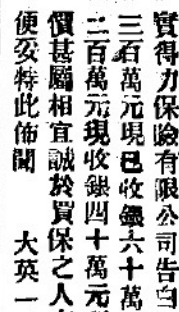 實得力保險有限公司告白
三百萬元現已收銀六十萬
二百萬元現收銀四十萬元
價甚屬相宜誠於買保之人
便妥特此佈聞 大英一